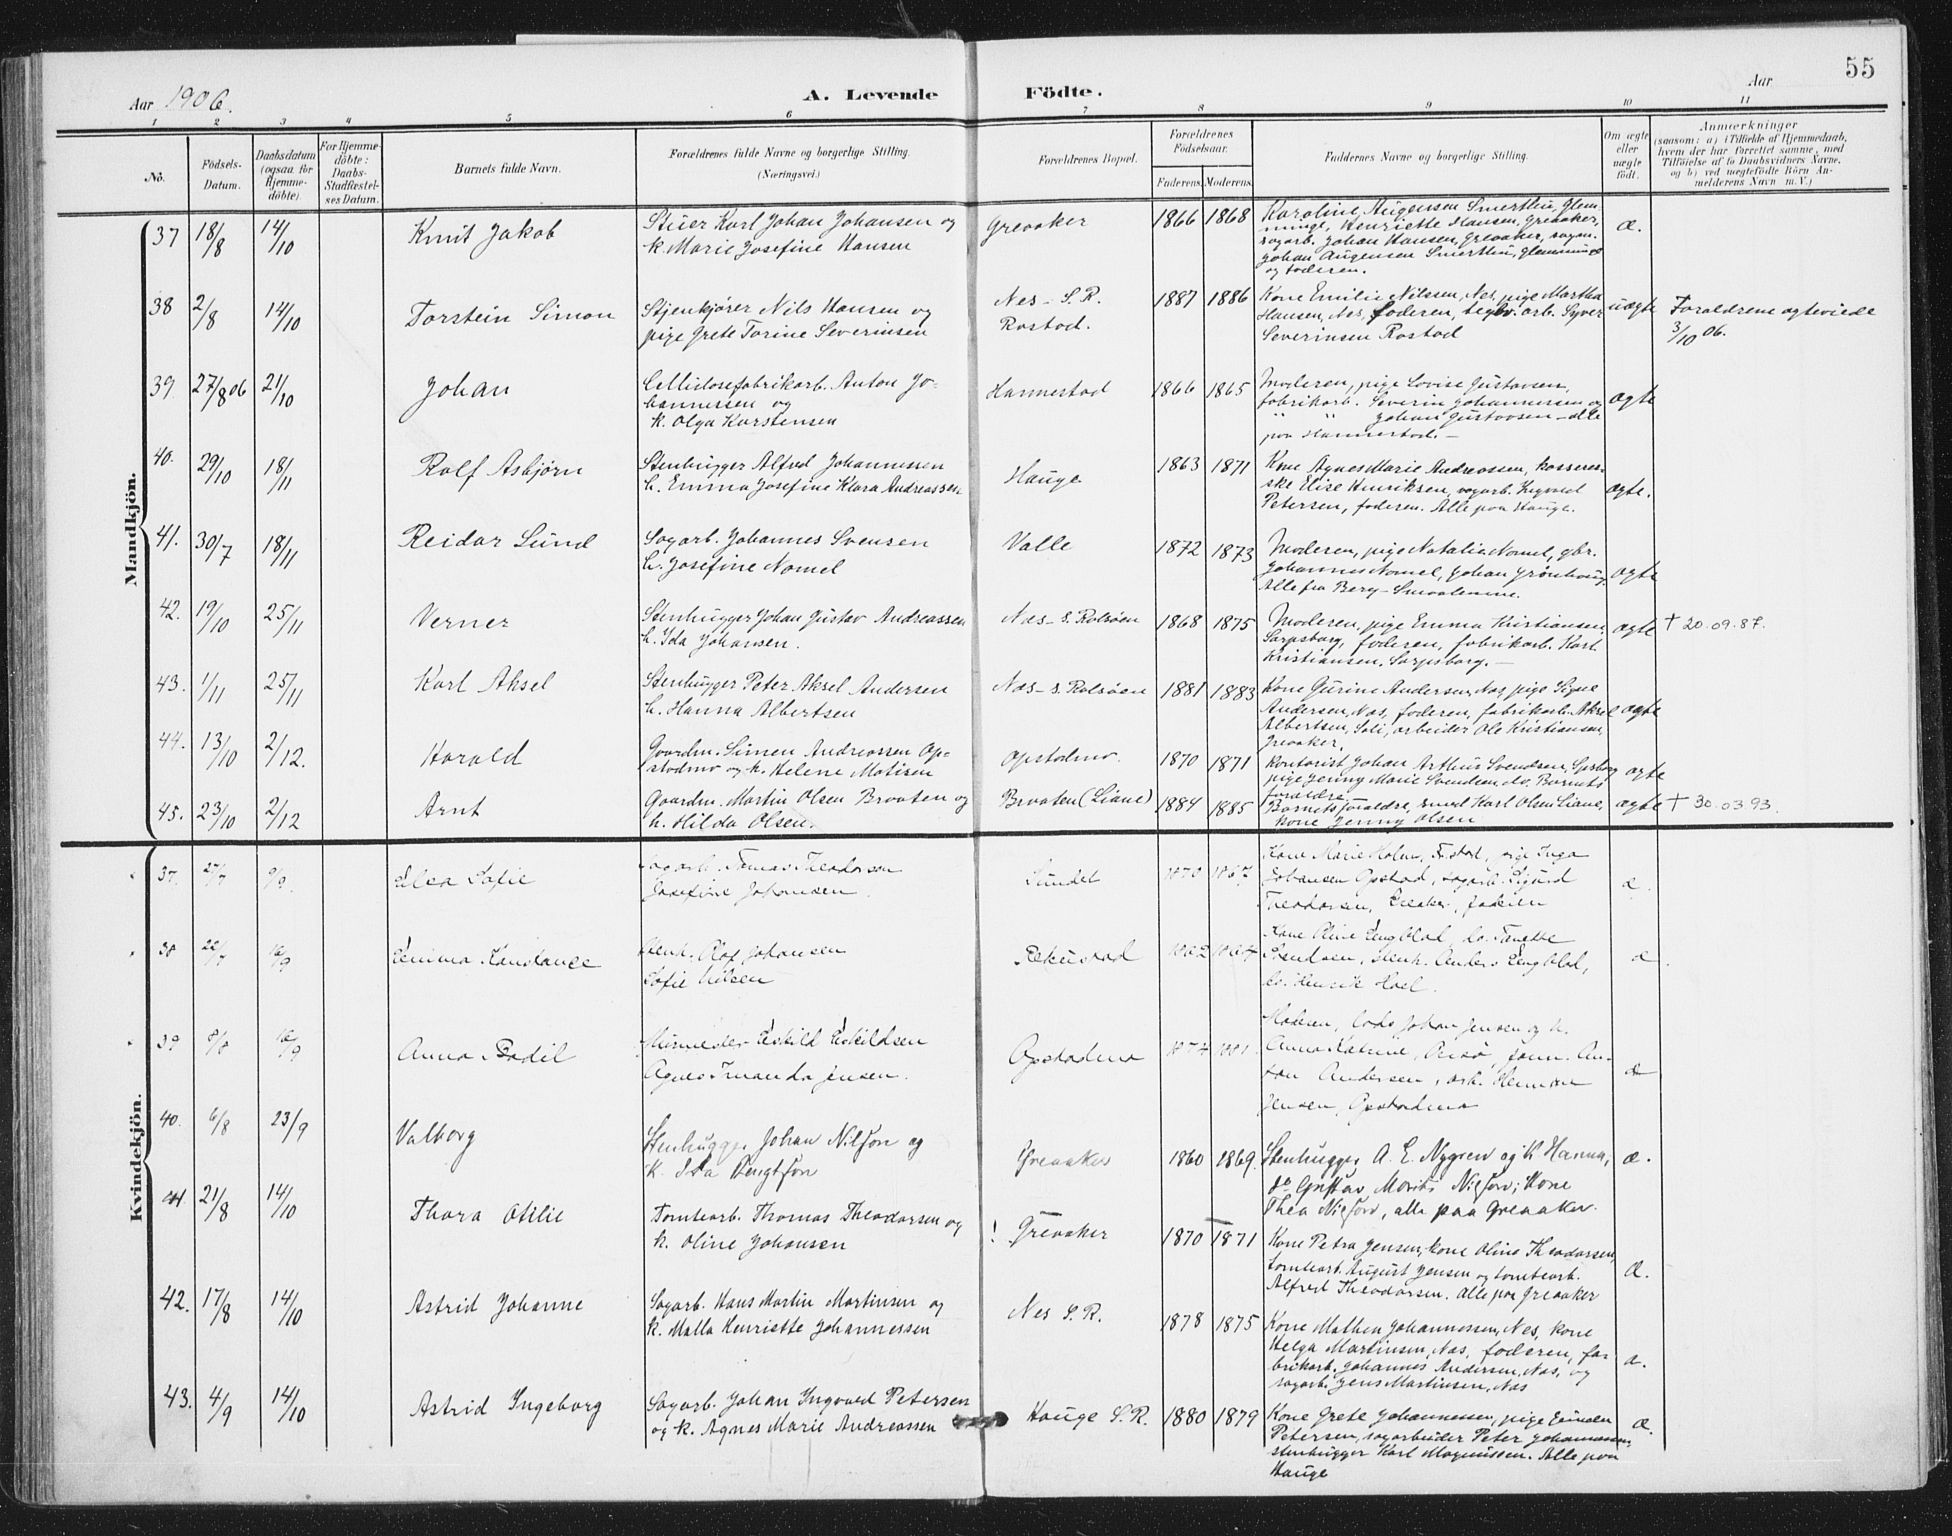 55
Aar 1906. A. Levende Födte. Aar
1 2 3 4 5 6 7 8 9 10 11
No. Födsels-Datum. Daabsdatum (ogsaa for Hjemme-döbte). For Hjemme-döbte: Daabs-Stadfæstel-ses Datum. Barnets fulde Navn. Forældrenes fulde Navne og borgerlige Stilling. (Næringsvei.) Forældrenes Bopæl. Forældrenes Födselsaar. Faderens. Moderens. Faddernes Navne og borgerlige Stilling. Om ægte eller uægte födt. Anmærkninger
(saasom: a) i Tilfælde af Hjemmedaab,
hvem der har forrettet samme, med
Tilföielse af to Daabsvidners Navne,
og b) ved uægtefödte Börn An-
melderens Navn m. V.)
Mandkjön.
37 18/8 14/10 Knut Jakob Stuer Karl Johan Johansen og Greaaker 1866 1868 Karoline Augensen Smertlin, Glem-
k. Marie Josefine Hansen
minge, Henriette Hansen, Greaaker,
sagarb. Johan Hansen, Greaaker, sagarb.
Johan Augensen Smertlin, Glemminge
og faderen. æ.
38 2/8 14/10 Torstein Simon Stjenkjører Nils Hansen og Nes - S. R. 1887 1886 Kone Emilie Nilsen, Nes, pige Martha uægte Foraldrene agteviede
pige Grete Torine Severinsen Rostad. Hansen, Nes, faderen, teglv. arb. Syver 3/10 06.
Severinsen Rostad
39 27/8 06 21/10 Johan Cellulosefabrikarb. Anton Jo- Hannestad 1866 1865 Moderen, pige Lovise Gustavsen, ægte
hannessen og fabrikarb. Severin Johannessen og
k. Olga Karstensen " " Johan Gustavsen - alle
paa Hannestad. -
40. 29/10 18/11 Rolf Asbjørn Stenhugger Alfred Johannessen Hauge 1863 1871 Kone Agnes Marie Andreassen, kasseres-
h. Emma Josefine Klara Andreassen ske Elise Henriksen, sagarb. Ingvald ægte.
Petersen, faderen. Alle paa Hauge.
41. 30/7 18/11 Reidar Lund Sagarb. Johannes Svensen Valle 1872 1873 Moderen, pige Natalie Nomel, gbr.
h. Josefine Nomel Johannes Nomel, Johan Grønhaug, ægte
Alle fra Berg - Smaalenene.
42. 19/10 25/11 Verner Stenhugger Johan Gustav Andreassen Næs - S. Rolsøen 1868 1875 Moderen, pige Emma Kristiansen, ægte † 20.09.87.
h. Ida Johansen. Sarpsborg, faderen, fabrikarb. Karl
Kristiansen, Sarpsborg. -
43. 1/11 25/11 Karl Aksel Stenhugger Peter Aksel Andersen Næs - S. Rolsøen 1881 1883 Kone Gurine Andersen, Næs, pige Signe
h. Hanna Albertsen Andersen, Næs, faderen, fabrikarb. Aksel ægte
Albertsen, Soli, arbeider Ole Kristiansen,
Greaaker.
44. 13/10 2/12. Harald Gaardm. Simen Andreassen Op- Opstadmo 1870 1871 Kontorist Johan Arthur Svendsen, Spsborg ægte
stadmo og h. Helene Matisen pige Jenny Marie Svendsen do. Barnets
foraldre
45. 23/10 2/12 Arnt Gaardm. Martin Olsen Braaten og Braaten (Liane) 1884 1885 Barnets foraldre, smed Karl Olsen Liane, ægte † 30.03.93.
h. Hilda Olsen. kone Jenny Olsen
Kvindekjön.
37. 27/7 9/9. Elea Sofie Sagarb. Tomas Teodorsen Sundet 1870 1867 Kone Marie Holm, pige Inga
Josefine Johansen. Johansen Opstad, sagarb. Sigurd æ.
Theodorsen, Greaker, faderen
38 22/7 16/9 Emma Konstanse Stenh. Olaf Johansen Kone Oline Engblad, do. Tanette
Sofie Nilsen Svendsen, stenh. Anders Engblad, æ.
do. Henrik Hoel.
39 8/8 16/9 Anna Bodil Murmester Eskild Eskildsen Opstadmo 1874 1881 Moderen, lods Johan Jensen og h.
Agnes Amanda Jensen. Anna Katrine, Onsø, Anton
Andersen, arb. Herman æ
Jensen, Opstadmo
40. 6/8 23/9 Valborg Stenhugger Johan Nilsson og Greaaker 1860 1869. Stenhugger A. E. Nygren og k Hanna, æ.
k. Ida Bengtson do Gustav Morits Nilsson, Kone
Thea Nilsson, alle paa Greaaker.
41 21/8 14/10 Thora Otilie Tomtearb. Thomas Theodorsen og ! Greaaker 1870 1871 Kone Petra Jensen, kone Oline Theodorsen,
k. Oline Johansen tomtearb. August Jensen og tomtearb. æ.
Alfred Theodorsen. alle paa Greaaker
42. 17/8 14/10 Astrid Johanne Sagarb. Hans Martin Martinsen og Nes S. R. 1878 1875 Kone Mathea Johannessen, Nes, kone
k. Malla Henriette Johannessen Helga Martinsen, Næs, faderen, fa- æ.
brikarb. Johannes Andersen, Næs, og
sagarb. Jens Martinsen, Næs
43. 4/9 14/10 Astrid Ingeborg Sagarb. Johan Ingvald Petersen Hauge S. R. 1880 1879 Kone Grete Johannessen, pige æ.
og k. Agnes Marie Andreassen Petersen, sagarbeider Peter Johannessen,
stenhugger Karl Magnussen. Alle paa
Hauge